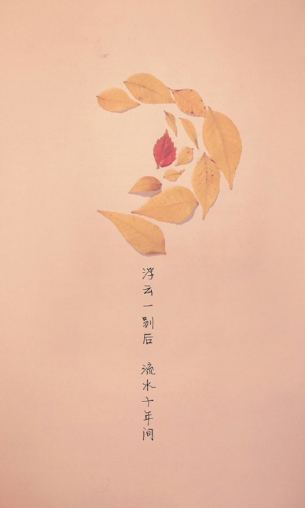 浮云一别后 流水十年间